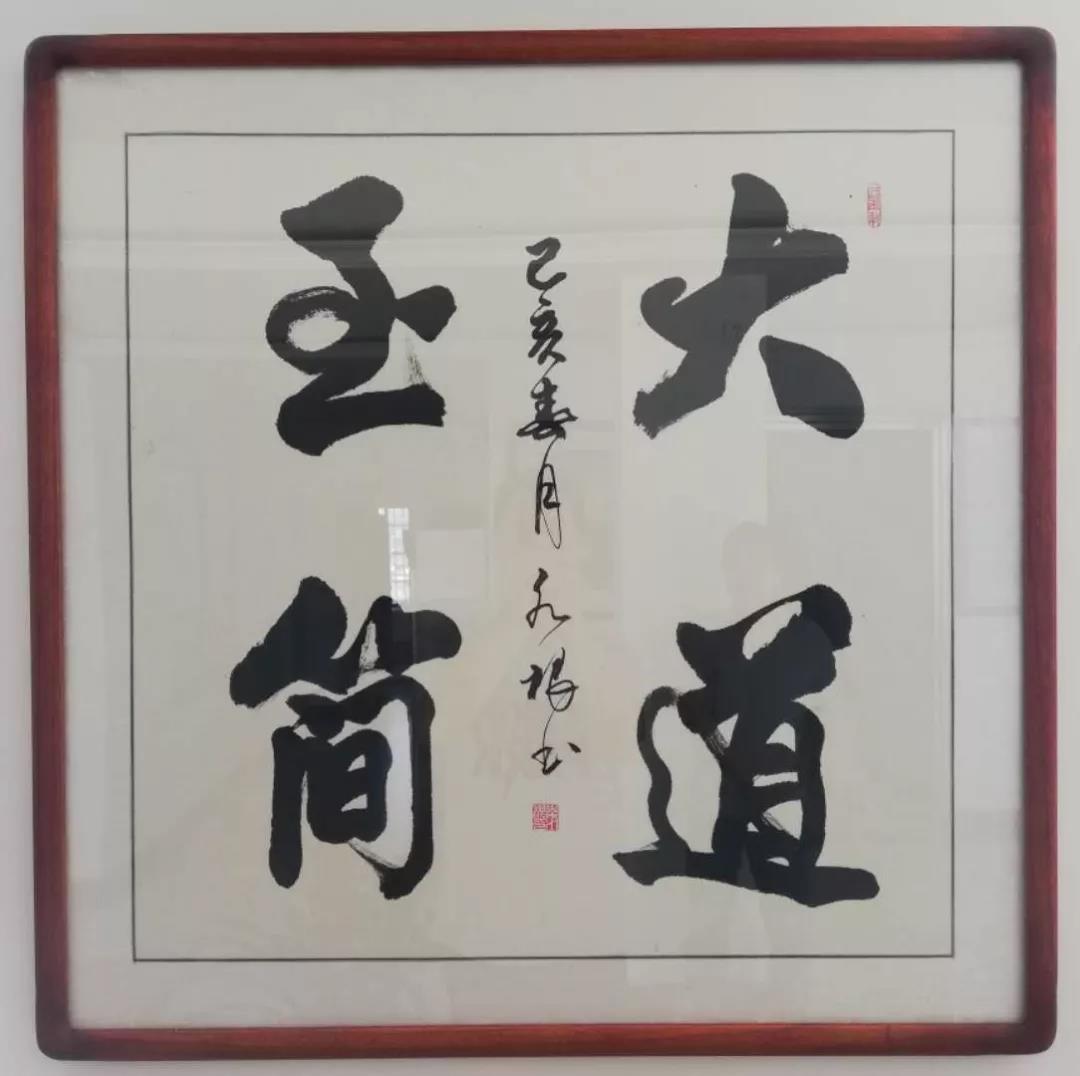 大道
至简
己亥春月永根书